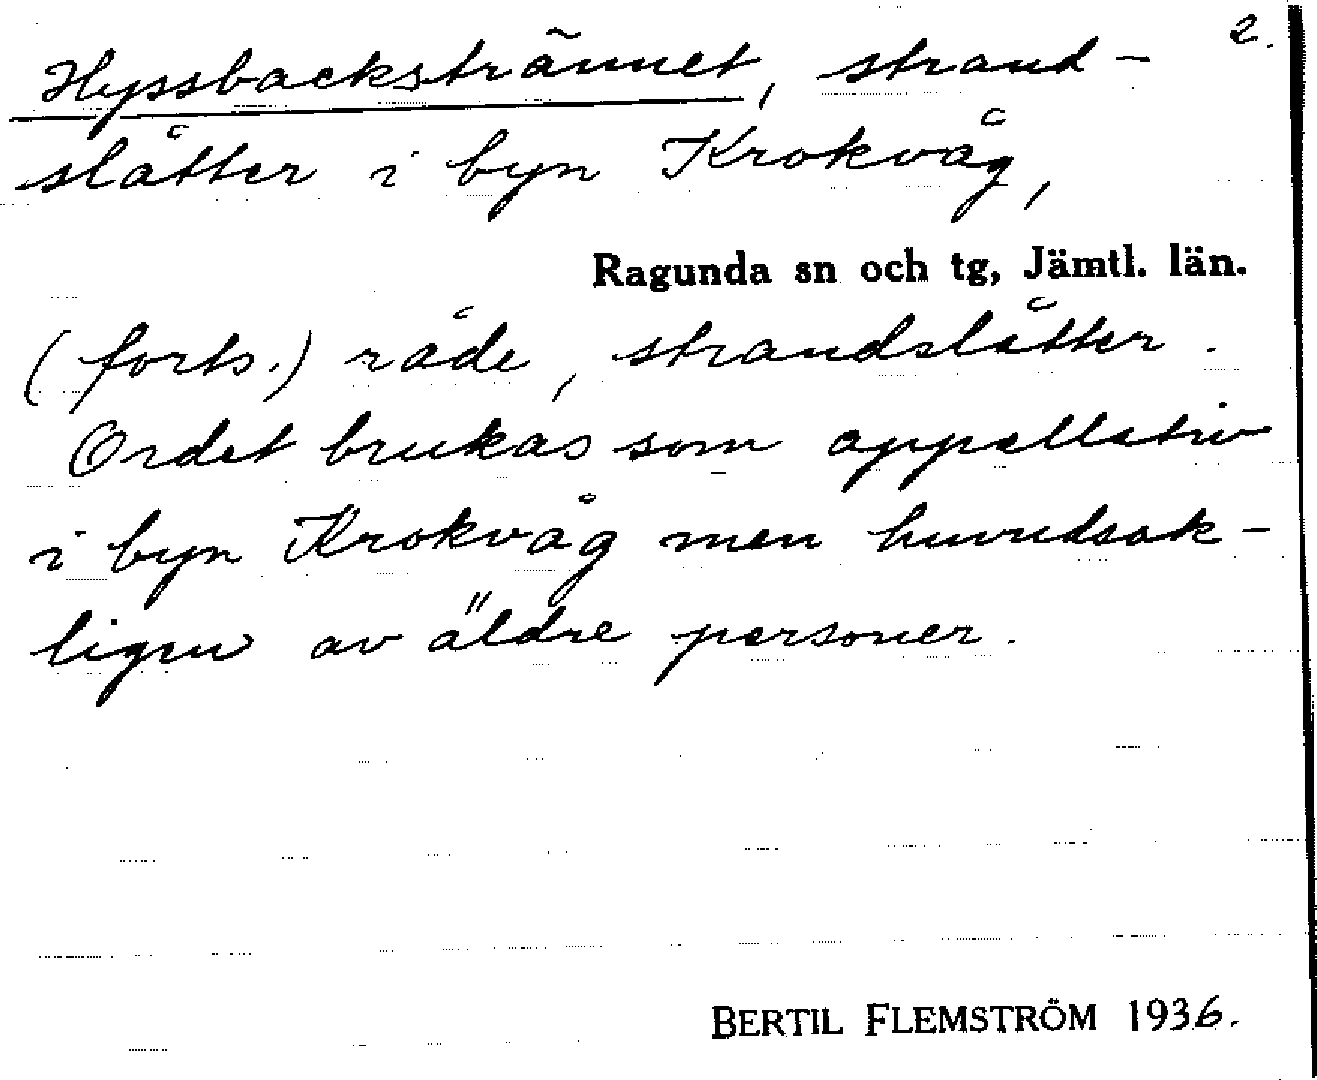 2.
Hyssbackstrännet, strand-
slåtter i byn Krokvåg,
Ragunda sn och tg, Jämtl. län.
(forts.) råde, strandslåtter.
Ordet brukas som appellativ
i byn Krokvåg men huvudsak-
ligen av äldre personer.
BERTIL FLEMSTRÖM 1936.